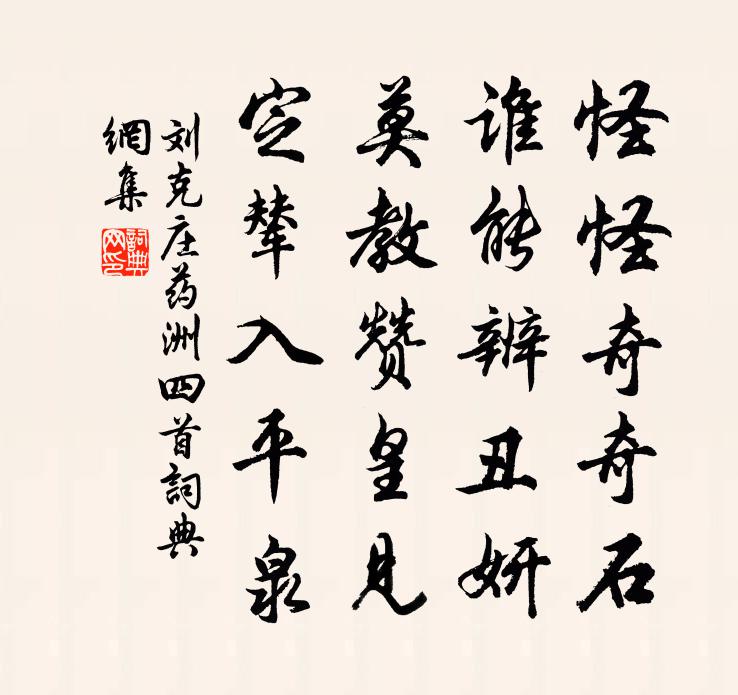 怪怪奇奇石
谁能辨丑妍
莫教赞皇见
定辇入平泉
刘克庄药洲四首詞典
網集
詞典网印